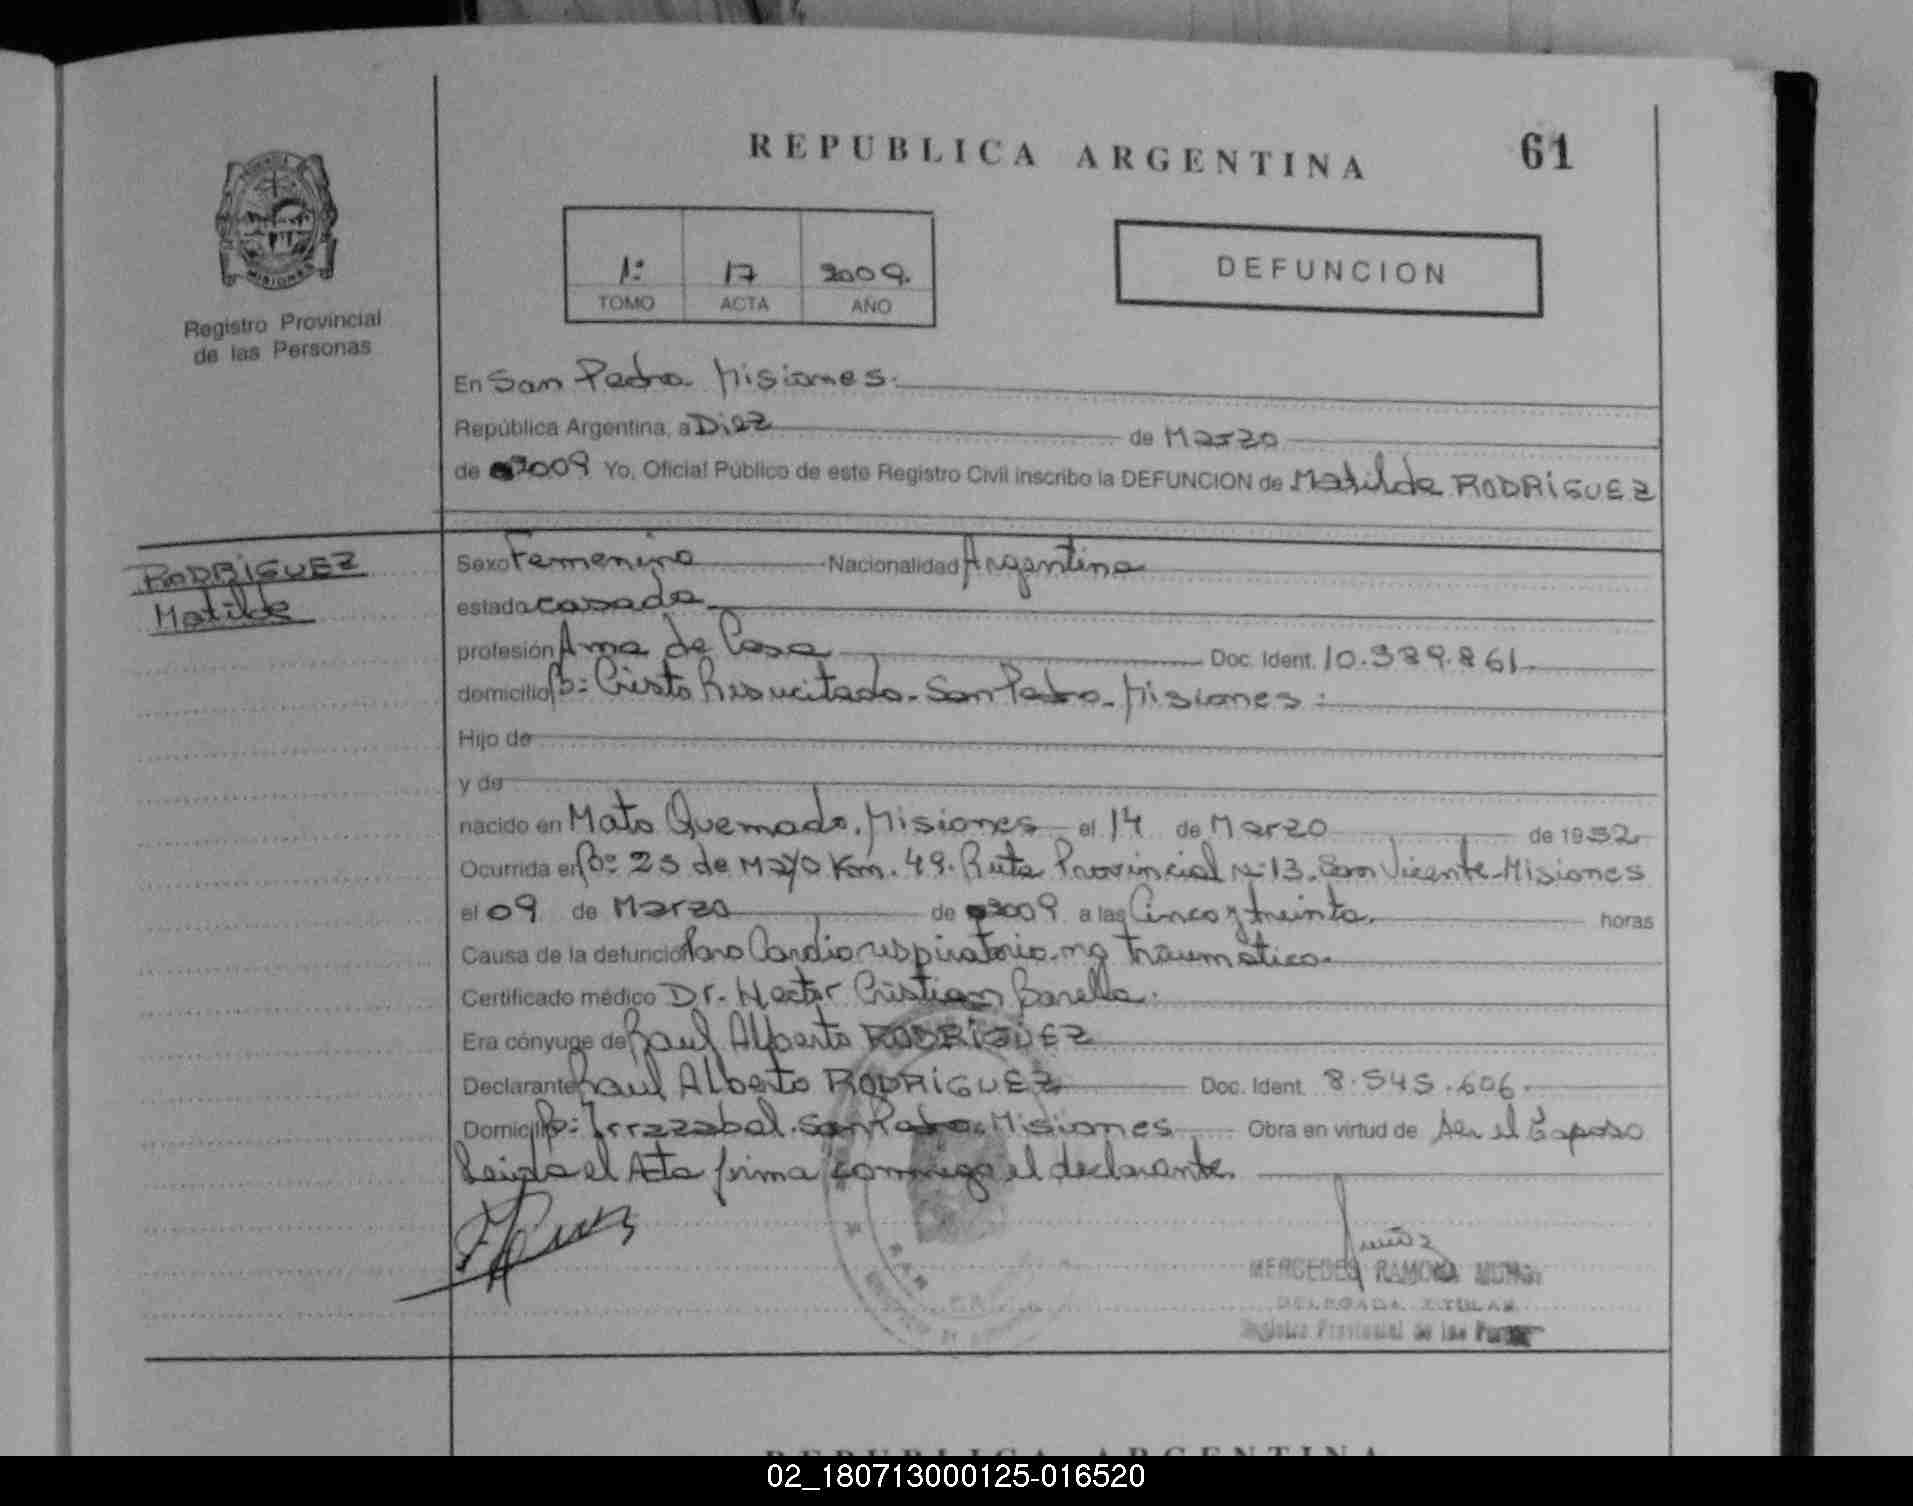 REPUBLICA ARGENTINA 61
MISIONES
Registro Provincial
de las Personas
1º 17 2009.
TOMO ACTA AÑO
DEFUNCION
En San Pedro Misiones.
República Argentina, a Diez de Marzo
de 2009 Yo, Oficial Público de este Registro Civil inscribo la DEFUNCION de Matilde RODRIGUEZ
RODRIGUEZ
Matilde
Sexo Femenino Nacionalidad Argentina
estado casada
profesión Ama de Casa Doc. Ident. 10.389.861
domicilio Bº: Cristo Resucitado - San Pedro - Misiones
Hijo de
y de
nacido en Mato Quemado, Misiones el 14 de Marzo de 1952
Ocurrida en Bº 25 de Mayo Km. 49. Ruta Provincial Nº 13. San Vicente - Misiones
el 09 de Marzo de 2009 a las Cinco y treinta. horas
Causa de la defunción Paro Cardiorespiratorio no traumático.
Certificado médico Dr. Hector Cristian Barella.
Era cónyuge de Raul Alberto RODRIGUEZ
Declarante Raul Alberto RODRIGUEZ Doc. Ident. 8.545.606.
Domicilio Bº: Irrazabal. San Pedro. Misiones Obra en virtud de ser el Esposo
Leida el Acta firma conmigo el declarante.
MERCEDES RAMONA
DELEGADA TITULAR
Registro Provincial de las
REPUBLICA ARGENTINA
02_180713000125-016520